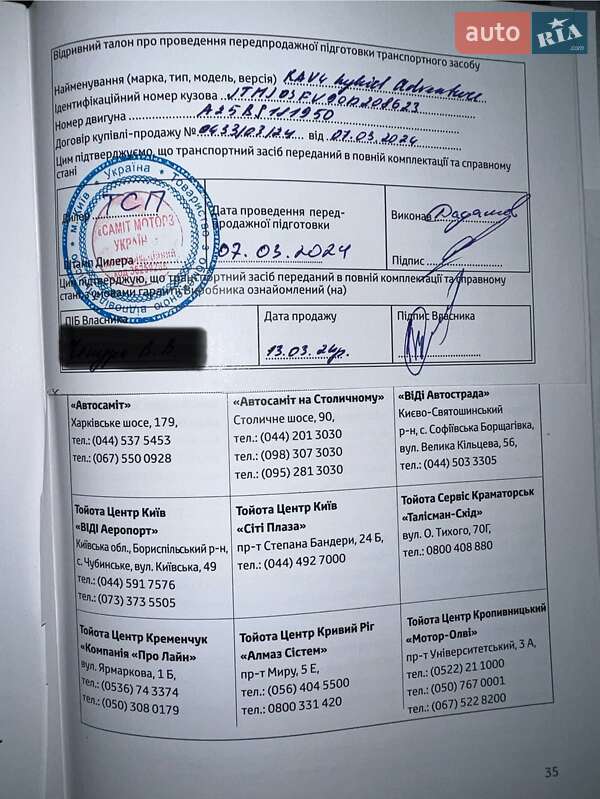 auto RIA .com
Відривний талон про проведення передпродажної підготовки транспортного засобу
Найменування (марка, тип, модель, версія) RAV4 hybrid Adventure
Ідентифікаційний номер кузова JTMJ03FV90D208623
Номер двигуна A25BS111950
Договір купівлі-продажу № 0433/03/24 від 07.03.2024
Цим підтверджуємо, що транспортний засіб переданий в повній комплектації та справному
стані
Дилер ТСП
Дата проведення перед-
продажної підготовки
07.03.2024
Виконав
Підпис
Штамп Дилера
м. Київ * Україна * Товариство з
«САМІТ МОТОРЗ
УКРАЇНА
Цим підтверджую, що транспортний засіб переданий в повній комплектації та справному
стані, з умовами гарантії Виробника ознайомлений (на)
ПІБ Власника
Дата продажу
13.03.24р.
Підпис Власника
«Автосаміт»
Харківське шосе, 179,
тел.: (044) 537 5453
тел.: (067) 550 0928
«Автосаміт на Столичному»
Столичне шосе, 90,
тел.: (044) 201 3030
тел.: (098) 307 3030
тел.: (095) 281 3030
«ВіДі Автострада»
Києво-Святошинський
р-н, с. Софіївська Борщагівка,
вул. Велика Кільцева, 56,
тел.: (044) 503 3305
Тойота Центр Київ
«ВІДІ Аеропорт»
Київська обл., Бориспільський р-н,
с. Чубинське, вул. Київська, 49
тел.: (044) 591 7576
тел.: (073) 373 5505
Тойота Центр Київ
«Сіті Плаза»
пр-т Степана Бандери, 24 Б,
тел.: (044) 492 7000
Тойота Сервіс Краматорськ
«Талісман-Схід»
вул. О. Тихого, 70Г,
тел.: 0800 408 880
Тойота Центр Кременчук
«Компанія «Про Лайн»
вул. Ярмаркова, 1 Б,
тел.: (0536) 74 3374
тел.: (050) 308 0179
Тойота Центр Кривий Ріг
«Алмаз Сістем»
пр-т Миру, 5 Е,
тел.: (056) 404 5500
тел.: 0800 331 420
Тойота Центр Кропивницький
«Мотор-Олві»
пр-т Університетський, 3 А,
тел.: (0522) 21 1000
тел.: (050) 767 0001
тел.: (067) 522 8200
35